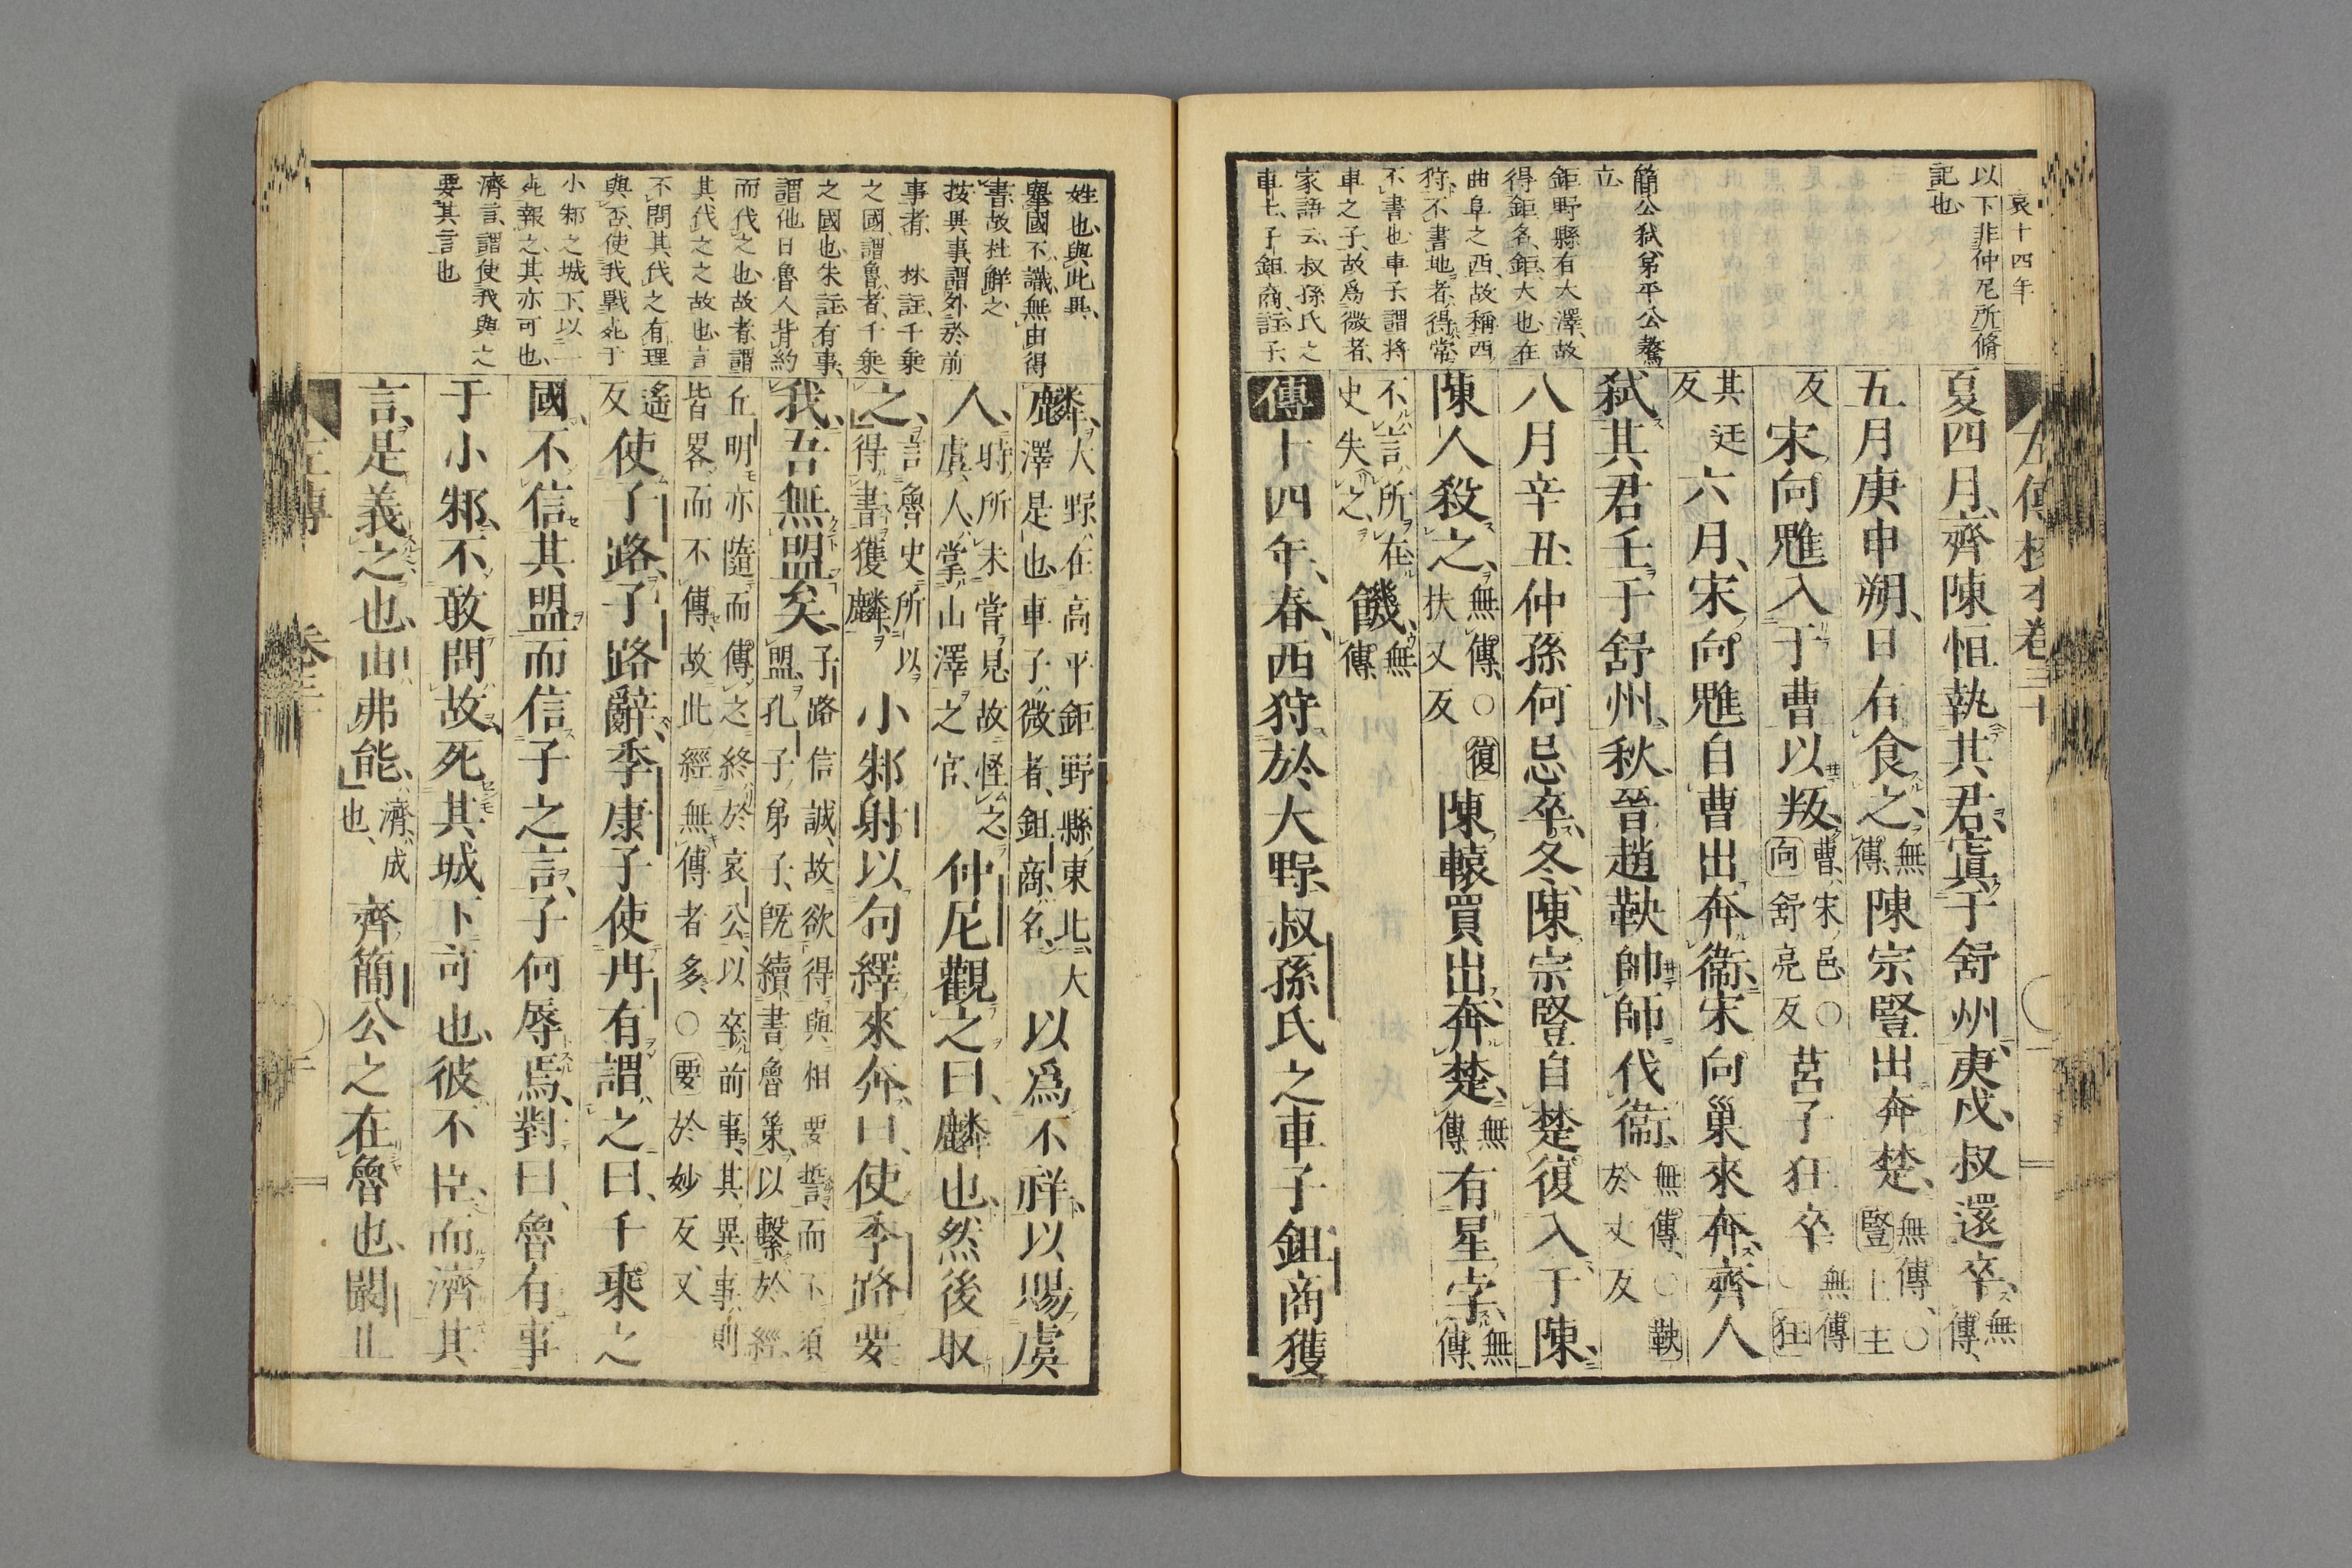 哀十四年
以下非仲尼所脩
記也
簡公弑弟平公驁
立
鉅野縣有大澤故
得鉅名鉅大也在
曲阜之西故稱西
狩不書地者得常
不書也車子謂將
車之子故爲微者
家語云叔孫氏之
車士子鉏商註子
夏四月齊陳恒執其君寘于舒州庚戌叔還卒無傳
五月庚申朔日有食之無傳陳宗豎出奔楚無傳○豎上主
反宋向魋入于曹以叛曹宋邑○向舒亮反莒子狂卒無傳○狂
其廷反六月宋向魋自曹出奔衞宋向巢來奔齊人
弑其君壬于舒州秋晉趙鞅帥師伐衞無傳○鞅於丈反
八月辛丑仲孫何忌卒冬陳宗豎自楚復入于陳
陳人殺之無傳○復扶又反陳轅買出奔楚無傳有星孛無傳
不言所在史失之饑無傳
傳十四年春西狩於大野叔孫氏之車子鉏商獲
姓也與此異
擧國不識無由得
書故杜觧之
按異事謂外於前
事者 林註千乗
之國謂魯者千乗
之國也朱註有事
謂他日魯人背約
而代之也故者謂
其代之之故也言
不問其伐之有理
與否使我戰死于
小邾之城下以一
死報之其亦可也
濟言謂使我與之
要其言也
麟大野在高平鉅野縣東北大澤是也車子微者鉏商名以爲不祥以賜虞
人時所未嘗見故怪之虞人掌山澤之官仲尼觀之曰麟也然後取
之言魯史所以得書獲麟小邾射以句繹來奔曰使季路要
我吾無盟矣子路信誠故欲得與相要誓而不須盟孔子弟子旣續書魯策以繫於經
丘明亦隨而傳之終於哀公以卒前事其異事則皆畧而不傳故此經無傳者多○要於妙反又
遙反使子路子路辭季康子使冉有謂之曰千乘之
國不信其盟而信子之言子何辱焉對曰魯有事
于小邾不敢問故死其城下可也彼不臣而濟其
言是義之也由弗能濟成也齊簡公之在魯也闞止